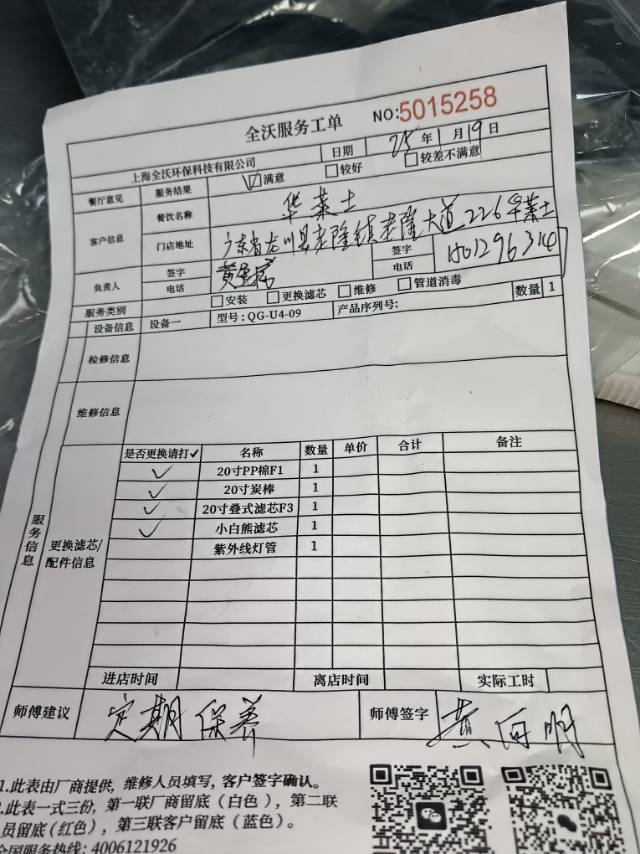 全沃服务工单 NO:5015258
上海全沃环保科技有限公司 日期 25年1月19日
餐厅意见 服务结果 ☑满意 □较好 □较差不满意
客户信息 餐饮名称 华莱士
门店地址 广东省龙川县老隆镇老隆大道226华莱士
负责人 签字 签字
电话 电话
服务类别 □安装 □更换滤芯 □维修 □管道消毒
设备信息 设备一 型号:QG-U4-09 产品序列号: 数量 1
检修信息
维修信息
服务信息
更换滤芯/配件信息
是否更换请打✓ 名称 数量 单价 合计 备注
✓ 20寸PP棉F1 1
✓ 20寸炭棒 1
✓ 20寸叠式滤芯F3 1
✓ 小白熊滤芯 1
紫外线灯管 1
进店时间 离店时间 实际工时
师傅建议 定期保养 师傅签字
1.此表由厂商提供, 维修人员填写, 客户签字确认。
2.此表一式三份, 第一联厂商留底(白色), 第二联
员留底(红色), 第三联客户留底(蓝色)。
全国服务热线: 4006121926